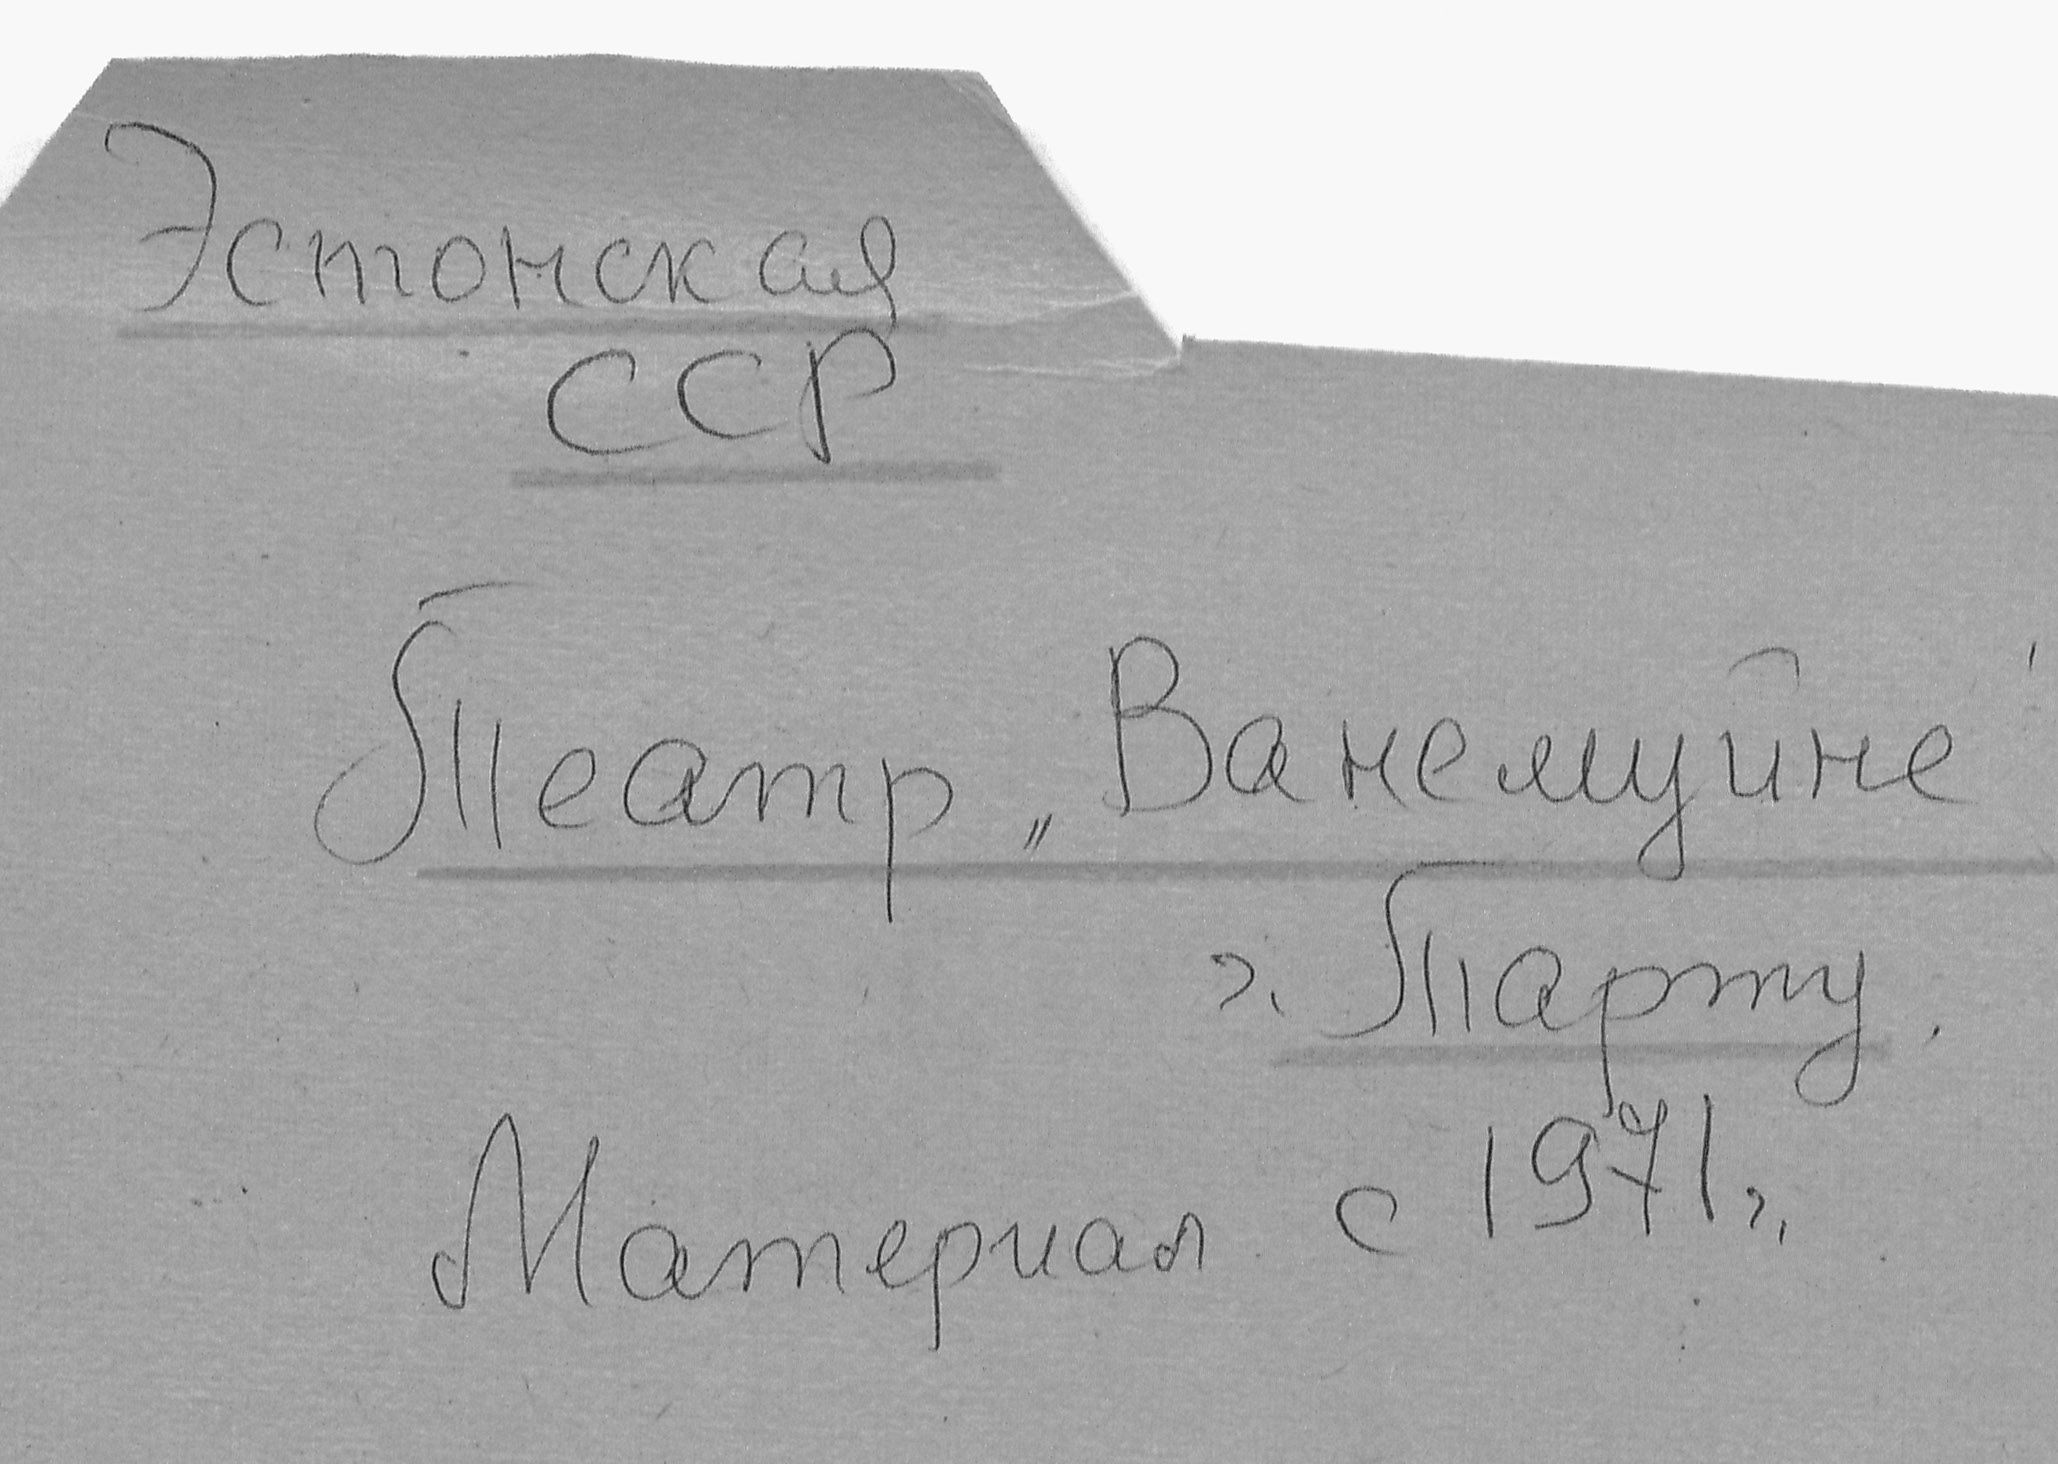 Эстонская
ССР
Театр „Ванемуйне"
г. Тарту.
Материал с 1971г.